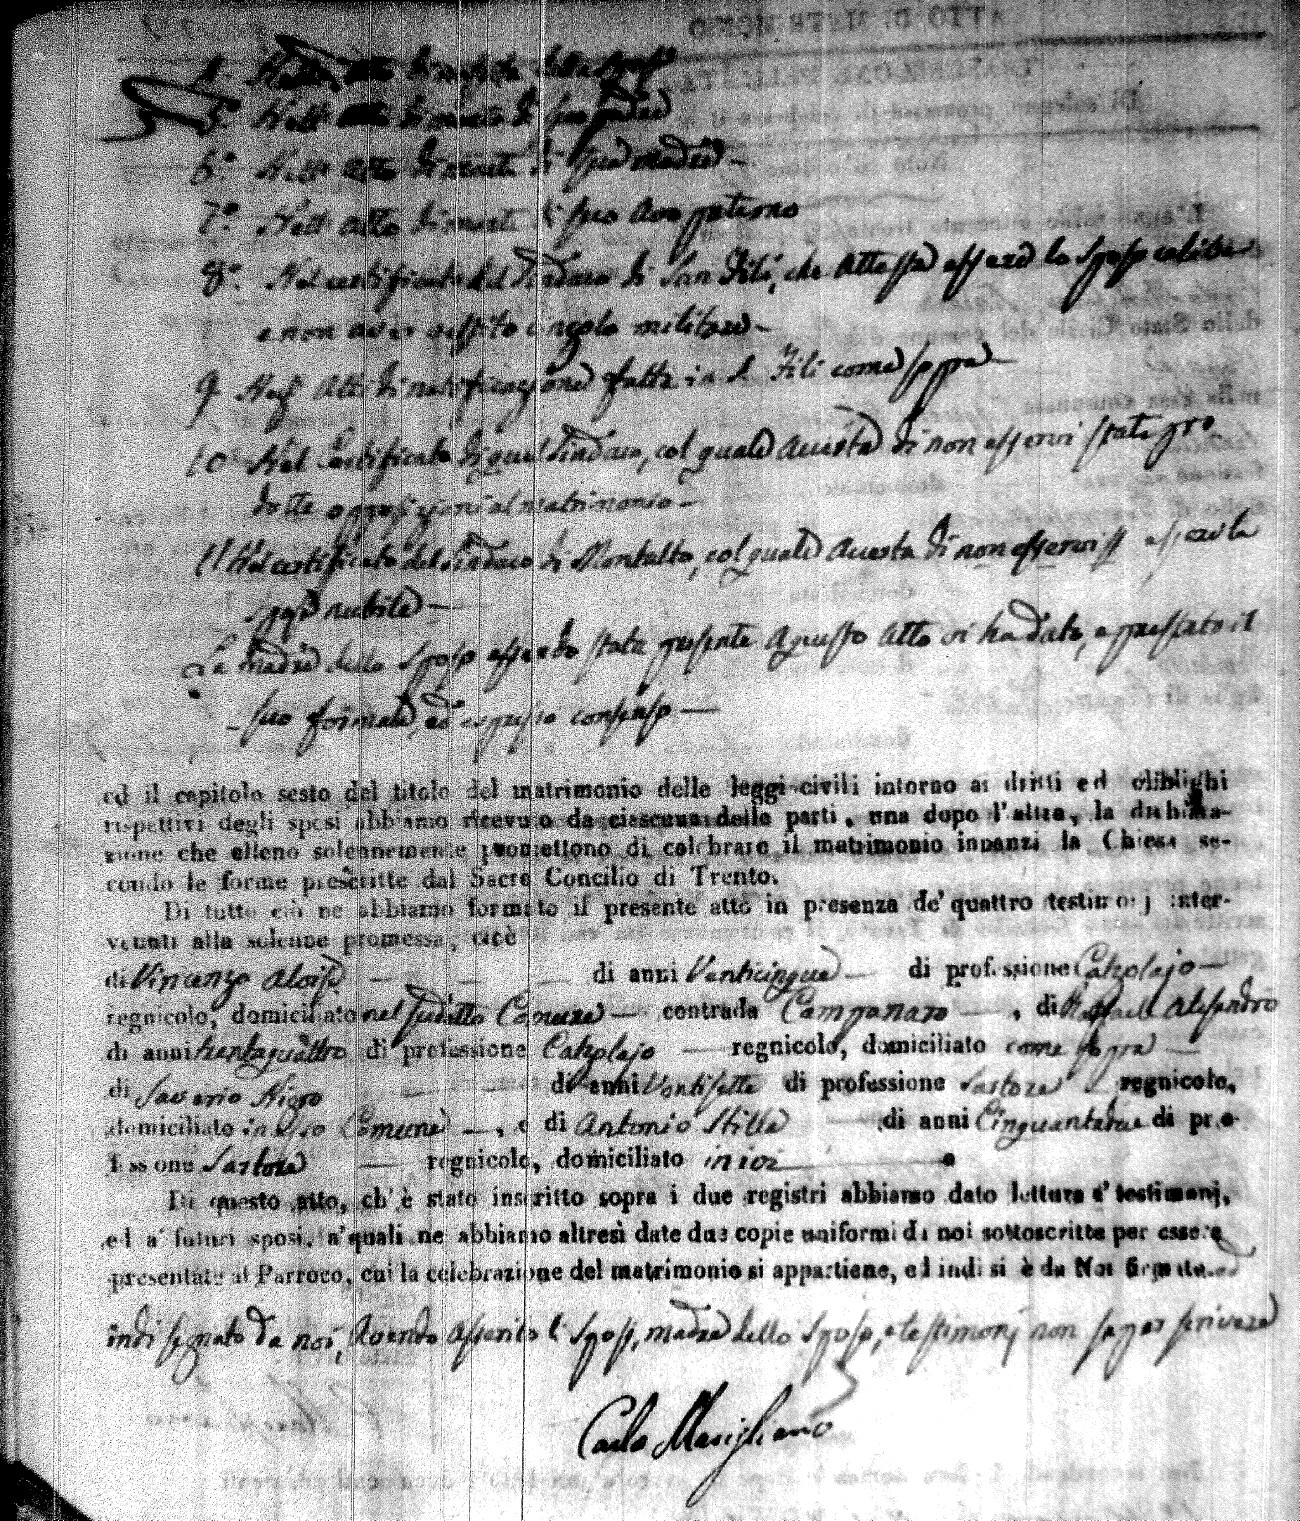 4° Nell' atto di nascita della sposa
5° Nell' atto di morte di suo padre
6° Nell' atto di morte di sua madre
7° Nell' atto di morte di suo avo paterno
8° Nel certificato del Sindaco di San Fili, che attesta essere lo sposo celibe
e non aver vincolo militare
9 Negl' atti di notificazione fatta in S. Fili come sopra
10 Nel Certificato di quel Sindaco, col quale accerta di non esservi state pro
dotte opposizioni al matrimonio
11 Nel certificato del Sindaco di Montalto, col quale accerta di non esservi essere la
sposa nubile
La madre dello sposo essendo stata presente a questo atto vi ha dato, e prestato il
suo formale, ed espresso consenso
ed il capitolo sesto del titolo del matrimonio delle leggi civili intorno ai dritti ed obblighi
rispettivi degli sposi abbiamo ricevuto da ciascuna delle parti, una dopo l'altra, la dichiara-
zione che elleno solennemente promettono di celebrare il matrimonio innanzi la Chiesa se-
condo le forme prescritte dal Sacro Concilio di Trento.
Di tutto ciò ne abbiamo formato il presente atto in presenza de' quattro testimonj inter-
venuti alla solenne promessa, cioè
di Vincenzo Aloise di anni Venticinque di professione Calzolajo
regnicolo, domiciliato nel suddetto Comune contrada Campanaro, di Raffaele Alesandro
di anni trentaquattro di professione Calzolajo regnicolo, domiciliato come sopra
di Saverio Nigro di anni Ventisette di professione Sartore regnicolo,
domiciliato in esso Comune, e di Antonio Stilla di anni Cinquantadue di pro-
fessione Sartore regnicolo, domiciliato in ivi
Di questo atto, ch'è stato inscritto sopra i due registri abbiamo dato lettura a' testimonj,
ed a' futuri sposi, a' quali ne abbiamo altresì date due copie uniformi da noi sottoscritte per essere
presentate al Parroco, cui la celebrazione del matrimonio si appartiene, ed indi si è da Noi firmato
indi segnato da noi, avendo asserito li sposi, madre dello sposo, e testimonj non saper scrivere
Carlo Marigliano